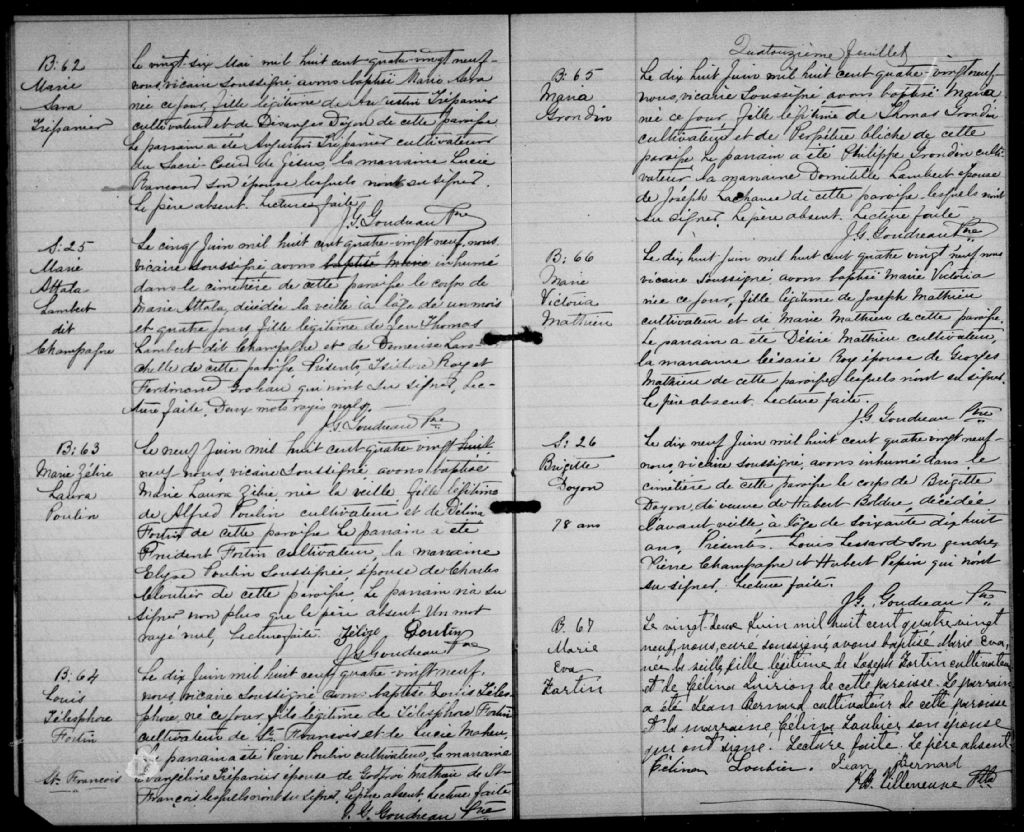 B: 62
Marie
Sara
Trépanier
Le vingt six Mai mil huit cent quatre vingt neuf
nous, vicaire Soussigné, avons baptisé Marie Sara
née ce jour, fille légitime de Augustin Trépanier
cultivateur et de Désanges Doyon de cette paroisse
le parrain a été Augustin Trépanier cultivateur
du Sacré-Coeur de Jésus, la marraine Lucie
Rancourt son épouse lesquels n'ont su signer.
Le père absent. Lecture faite
J. G. Goudreau Ptre
S: 25
Marie
Attala
Lambert
dit
Champagne
Le cinq Juin mil huit cent quatre-vingt neuf, nous
vicaire soussigné avons baptisé Marie inhumé
dans le cimetière de cette paroisse le corps de
Marie Attala, décédée la veille à l'âge de un mois
et quatre jours fille légitime de Jeu Thomas
Lambert dit Champagne et de Démerise
de cette paroisse. Présents, Isidore Roy et
Ferdinand Grohau qui n'ont su signer, Lec-
ture faite. Deux mots rayés nuls.
J. G. Goudreau Ptre
B: 63
Marie Zélire
Laura
Poulin
Le neuf Juin mil huit cent quatre vingt huit
neuf nous, vicaire Soussigné avons baptisé
Marie Laura Zélire, née la veille, fille légitime
de Alfred Poulin cultivateur et de Délina
Fortin de cette paroisse Le parrain a été
Prudent Fortin cultivateur, la marraine
Elyse Poulin Soussignée épouse de Charles
Cloutier de cette paroisse. Le parrain n'a su
signer non plus que le père absent Un mot
rayé nul, Lecture faite. Poulin
J. G. Goudreau Ptre
B: 64
Louis
Télesphore
Fortin
St. François
Le dix Juin mil huit cent quatre-vingt neuf,
nous, vicaire Soussigné avons baptisé Louis Téles-
phore, né ce jour, fils légitime de Télesphore Fortin
cultivateur de St. François et de Lucie Maheu,
Le parrain a été Pierre Poulin cultivateur, la marraine
Evangéline Trépanier épouse de Godfroi Mathieu de St-
François lesquels n'ont su signer, le père absent, Lecture faite
J. G. Goudreau Ptre
Quatorzième feuillet
B: 65
Maria
Grondin
Le dix huit Juin mil huit cent quatre-vingt neuf
nous, vicaire Soussigné, avons baptisé Maria
née ce jour, fille légitime de Thomas Grondin
cultivateur et de Perpétue Cliche de cette
paroisse Le parrain a été Philippe Grondin culti-
vateur la marraine Domitille Lambert épouse
de Joseph Lachance de cette paroisse lesquels n'ont
su signer. Le père absent. Lecture faite
J. G. Goudreau Ptre
B: 66
Marie
Victoria
Mathieu
Le dix huit Juin mil huit cent quatre vingt neuf nous
vicaire soussigné avons baptisé Marie Victoria
née ce jour, fille légitime de Joseph Mathieu
cultivateur et de Marie Mathieu de cette paroisse
Le parrain a été Désiré Mathieu cultivateur,
la marraine Césarie Roy épouse de Georges
Mathieu de cette paroisse lesquels n'ont su signer.
Le père absent. Lecture faite.
J. G. Goudreau Ptre
S: 26
Brigitte
Doyon
78 ans
Le dix neuf Juin mil huit cent quatre vingt neuf-
nous, vicaire soussigné, avons inhumé dans le
cimetière de cette paroisse le corps de Brigitte
Doyon, de veuve de Hubert Bolduc, décédée
l'avant veille, à l'âge de soixante dix huit
ans, Présents. Louis Lessard son gendre,
Pierre Champagne et Hubert Pépin qui n'ont
su signer. Lecture faite.
J. G. Goudreau Ptre
B. 67
Marie
Eva
Fortin
Le vingt-deux Juin mil huit cent quatre vingt
neuf, nous, curé soussigné, avons baptisé Marie Eva,
née la veille, fille légitime de Joseph Fortin cultivateur
et de Célina Quirion de cette paroisse. Le parrain
a été Jean Bernard cultivateur de cette paroisse
et la marraine Célina Loubier son épouse
qui ont signé. Lecture faite. Le père absent
Célina Loubier. Jean Bernard
J. B. Villeneuve Ptre